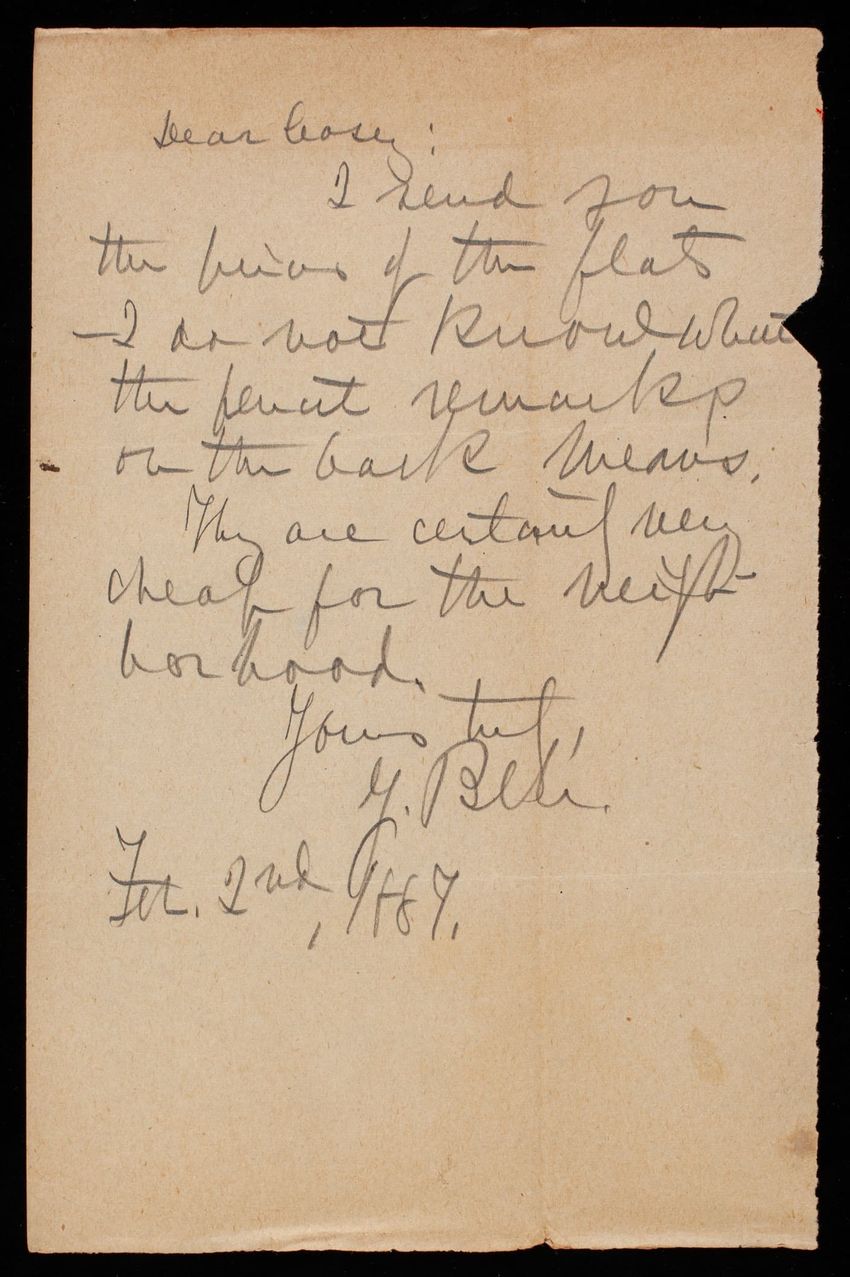 Dear Casey:
I send you
the prices of the flats
- I do not know what
the pencil remarks
on the back means.
They are certainly very
cheap for the neigh-
borhood.
Yours truly,
Feb. 2nd, 1887.